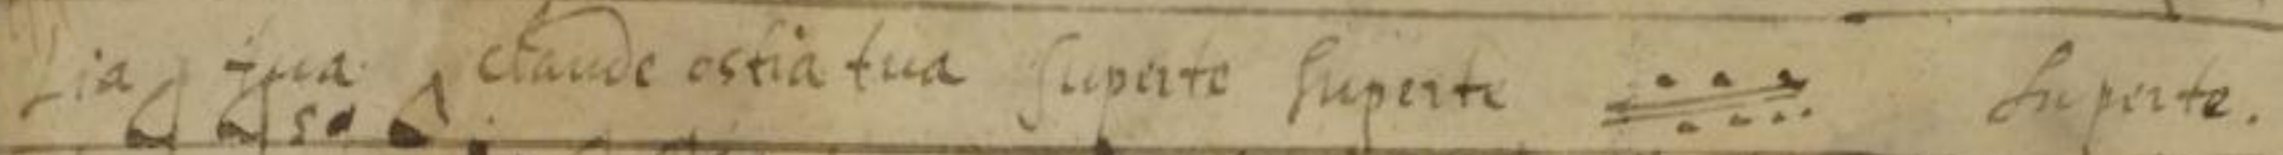 tia tua claude ostia tua superte superte superte.